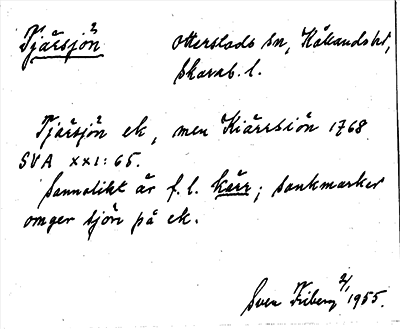 Tjärsjön Otterstads sn, Kållands hd,
Skarab. l.
Tjärsjön ek, men Kiärrsiön 1768
SVA XXI:65.
Sannolikt är f. l. kärr; sankmarker
omger sjön på ek.
Sven Friberg 2/1 1955.